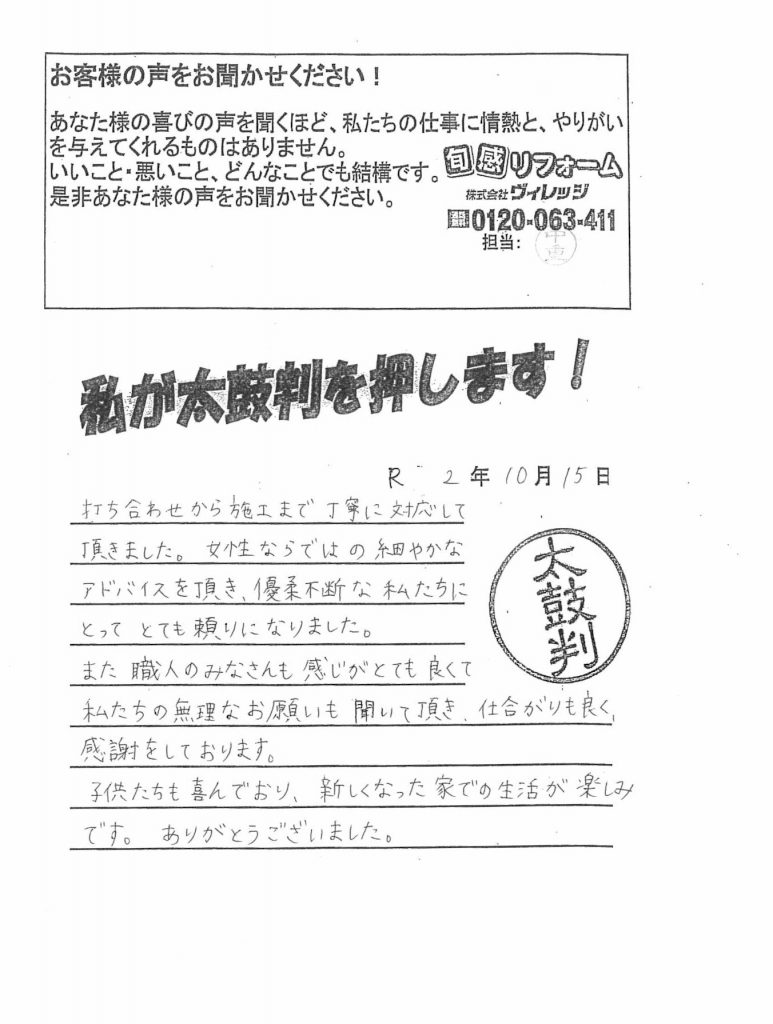 お客様の声をお聞かせください！
あなた様の喜びの声を聞くほど、私たちの仕事に情熱と、やりがい
を与えてくれるものはありません。
いいこと・悪いこと、どんなことでも結構です。
是非あなた様の声をお聞かせください。
旬感リフォーム
株式会社ヴィレッジ
0120-063-411
担当：
私が太鼓判を押します！
R 2年10月15日
打ち合わせから施工まで丁寧に対応して
頂きました。女性ならではの細やかな
アドバイスを頂き、優柔不断な私たちに
とってとても頼りになりました。
また職人のみなさんも感じがとても良くて
私たちの無理なお願いも聞いて頂き、仕合がりも良く、
感謝をしております。
子供たちも喜んでおり、新しくなった家での生活が楽しみ
です。ありがとうございました。
太鼓判